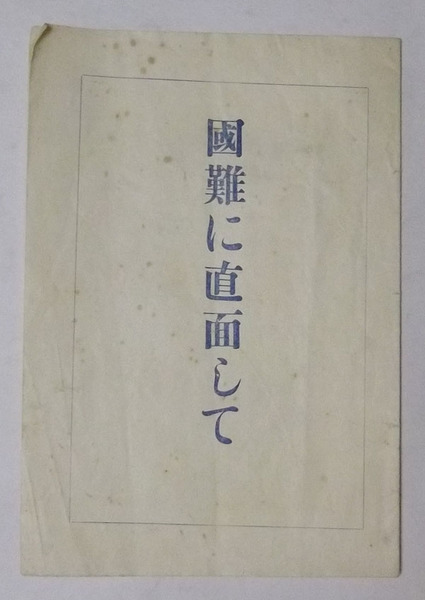 國難に直面して